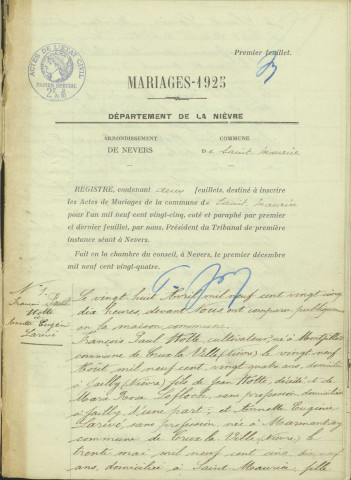 Premier feuillet.
ACTES DE L'ÉTAT CIVIL
PAPIER SPÉCIAL
MARIAGES-1925
DÉPARTEMENT DE LA NIÈVRE
ARRONDISSEMENT
DE NEVERS
COMMUNE
DE Saint Maurice
REGISTRE, contenant deux feuillets, destiné à inscrire
les Actes de Mariages de la commune de Saint Maurice
pour l'an mil neuf cent vingt-cinq, coté et paraphé par premier
et dernier feuillet, par nous, Président du Tribunal de première
instance séant à Nevers.
Fait en la chambre du conseil, à Nevers, le premier décembre
mil neuf cent vingt-quatre.
N° 1
François Paul
et
Eugénie
Larivé
Le vingt huit Avril mil neuf cent vingt cinq
dix heures, devant Nous ont comparu publiquement
en la maison commune
François Paul, cultivateur, né à
commune de Crux la Ville (Nièvre) le vingt neuf
Août mil neuf cent, vingt quatre ans, domicilié
à Jailly (Nièvre) fils de Jean, décédé et de
Marie, sans profession domiciliée
à Jailly d'une part; et Annette Eugénie
Larivé, sans profession née à Marmantray
commune de Crux la Ville, (Nièvre) le
trente mai mil neuf cent cinq, dix neuf
ans, domiciliée à Saint Maurice, fille